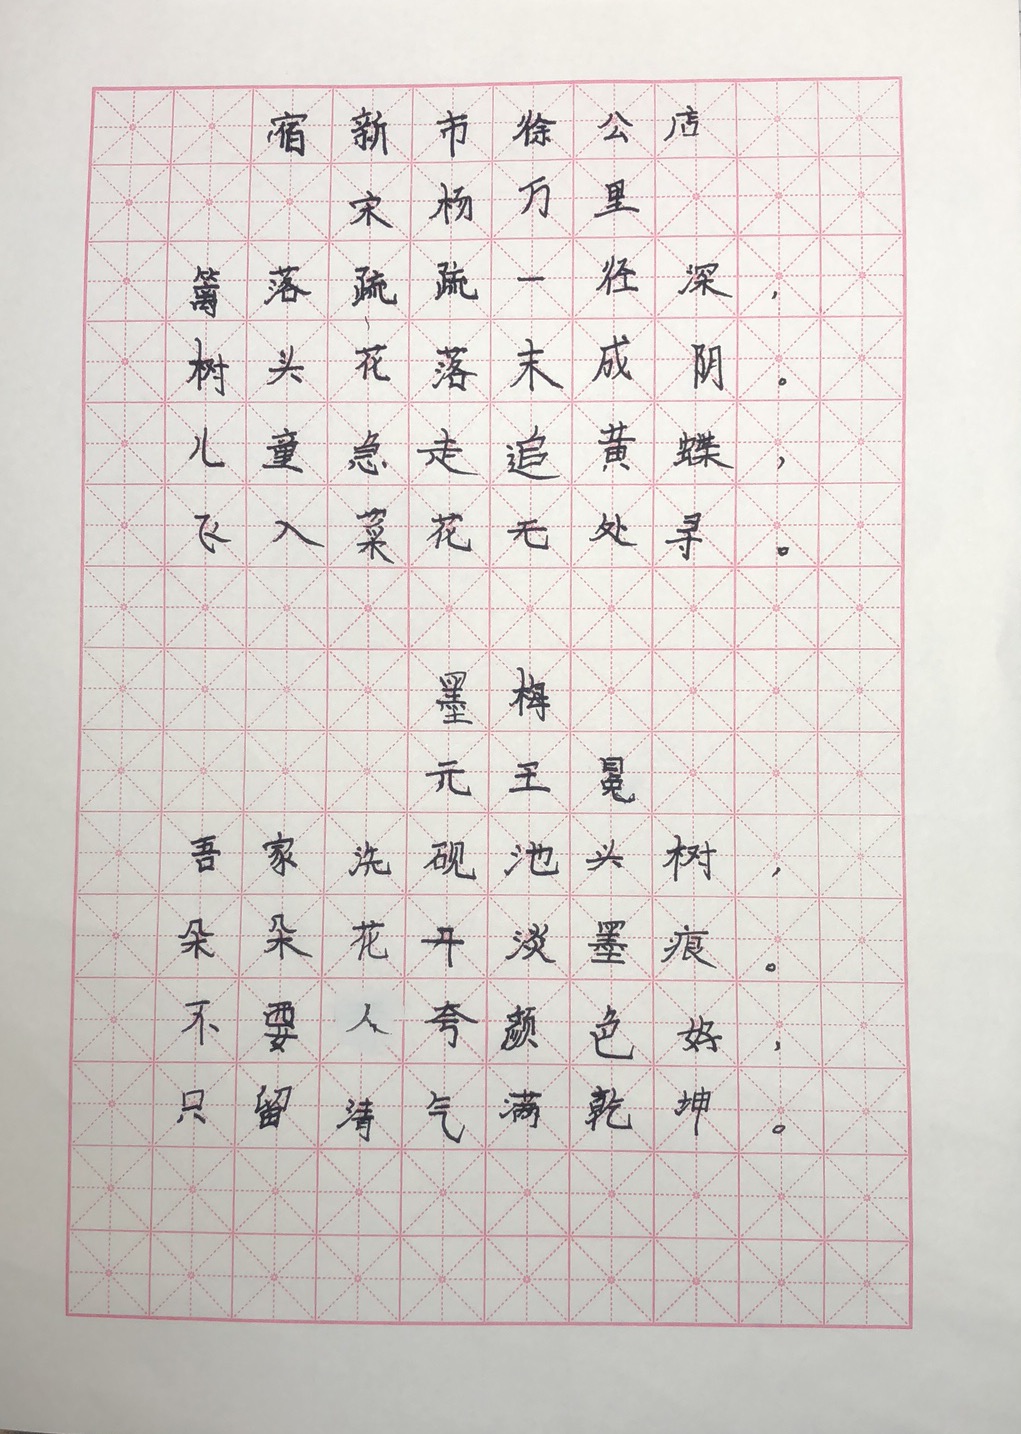 宿新市徐公店
宋杨万里
篱落疏疏一径深，
树头花落末成阴。
儿童急走追黄蝶，
飞入菜花无处寻。
墨梅
元王冕
吾家洗砚池头树，
朵朵花开淡墨痕。
不要人夸颜色好，
只留清气满乾坤。